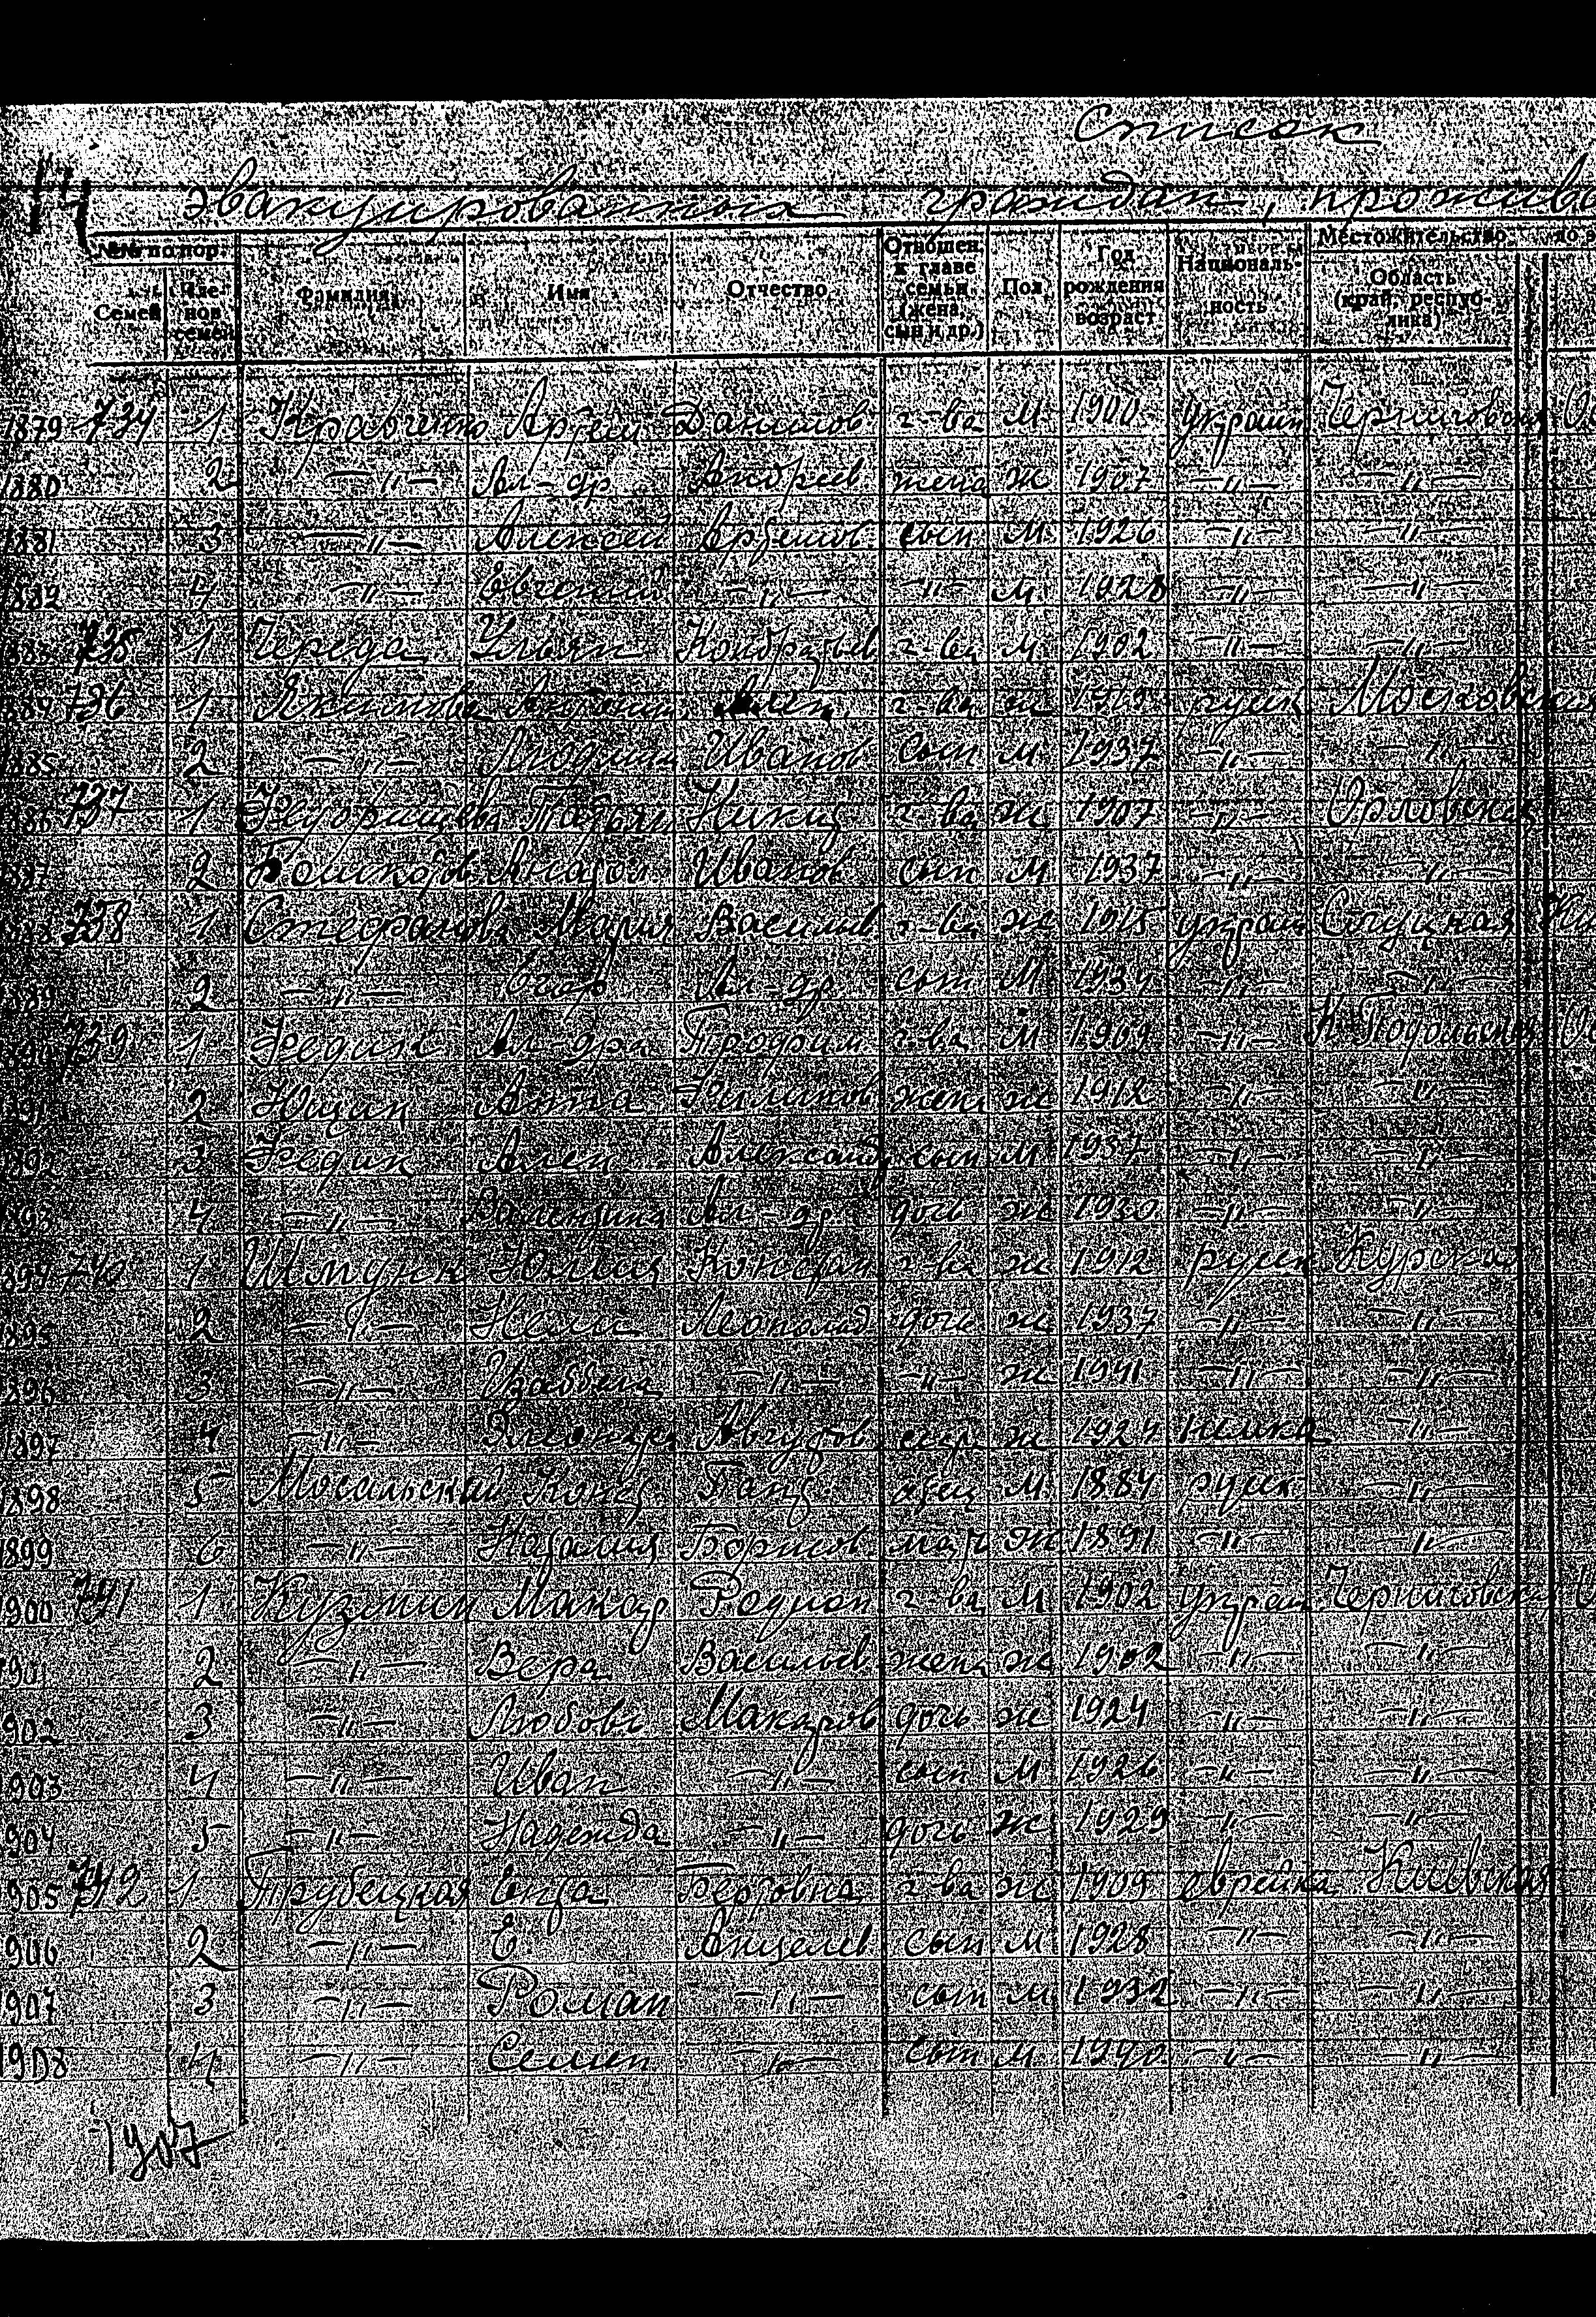 Список
14
Эвакуированных граждан, прожива
№№ по пор. Фамилия Имя Отчество Отношен. к главе семьи (жена, сын и др.) Пол Год рождения возраст Националь-ность Местожительство до э
Семей Чле-нов семей Область (край, респуб-лика)
1879 734 1 Кравченко Артем Данилов г-ва м 1900 украин Черниговская
1880 2 —"— Ал-др Андреев жена ж 1907 —"— —"—
1881 3 —"— Алексей Артемов сын м 1926 —"— —"—
1882 4 —"— Евгений —"— —"— м 1928 —"— —"—
1883 735 1 Череда Ульян Кондратьев г-ва м 1902 —"— —"—
1884 736 1 Якимова г-ва ж русск Московская
1885 2 —"— Иванов сын м 1937 —"— —"—
1886 737 1 Никит г-ва ж 1907 —"— Орловская
887 2 Анатол Иванов сын м 1937 —"— —"—
888 738 1 Стефанова Мария Васильев г-ва ж 1915 украин
889 2 —"— Ал-др сын м 1934 —"— —"—
890 739 1 Федик Ал-др Трофим г-ва м 1909 —"— К Подольская
891 2 Ющик Анна Филипов жена ж 1912 —"— —"—
892 3 Федик Алек Александ сын м 1937 —"— —"—
893 4 —"— Валентина Ал-др дочь ж 1930 —"— —"—
894 740 1 Юлия Констан г-ва ж 1912 русск Курская
895 2 —"— Нели Леопольд дочь ж 1937 —"— —"—
896 3 —"— Изабела —"— —"— ж 1941 —"— —"—
1897 4 —"— Элеонора Августов сестр ж 1924 немка —"—
1898 5 Мосальский Конст отец м 1884 русск —"—
1899 6 —"— Наталия Борисов мать ж 1891 —"— —"—
1900 741 1 Макар Родион г-ва м 1902 украин Черниговская
901 2 —"— Вера Васильев жена ж 1902 —"— —"—
902 3 —"— Любовь Макаров дочь ж 1924 —"— —"—
903 4 —"— Иван —"— сын м 1926 —"— —"—
904 5 —"— Надежда —"— дочь ж 1929 —"— —"—
905 742 1 Трубецкая Ента Бертовна г-ва ж 1905 еврейка Киевская
906 2 —"— Е. Анцелев сын м 1928 —"— —"—
907 3 —"— Роман —"— сын м 1932 —"— —"—
1908 4 —"— Семен —"— сын м 1940 —"— —"—
1907